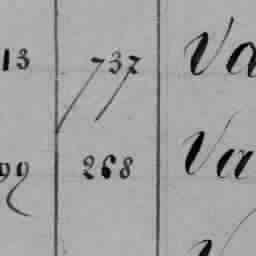 13 737 Va
99 268 Va